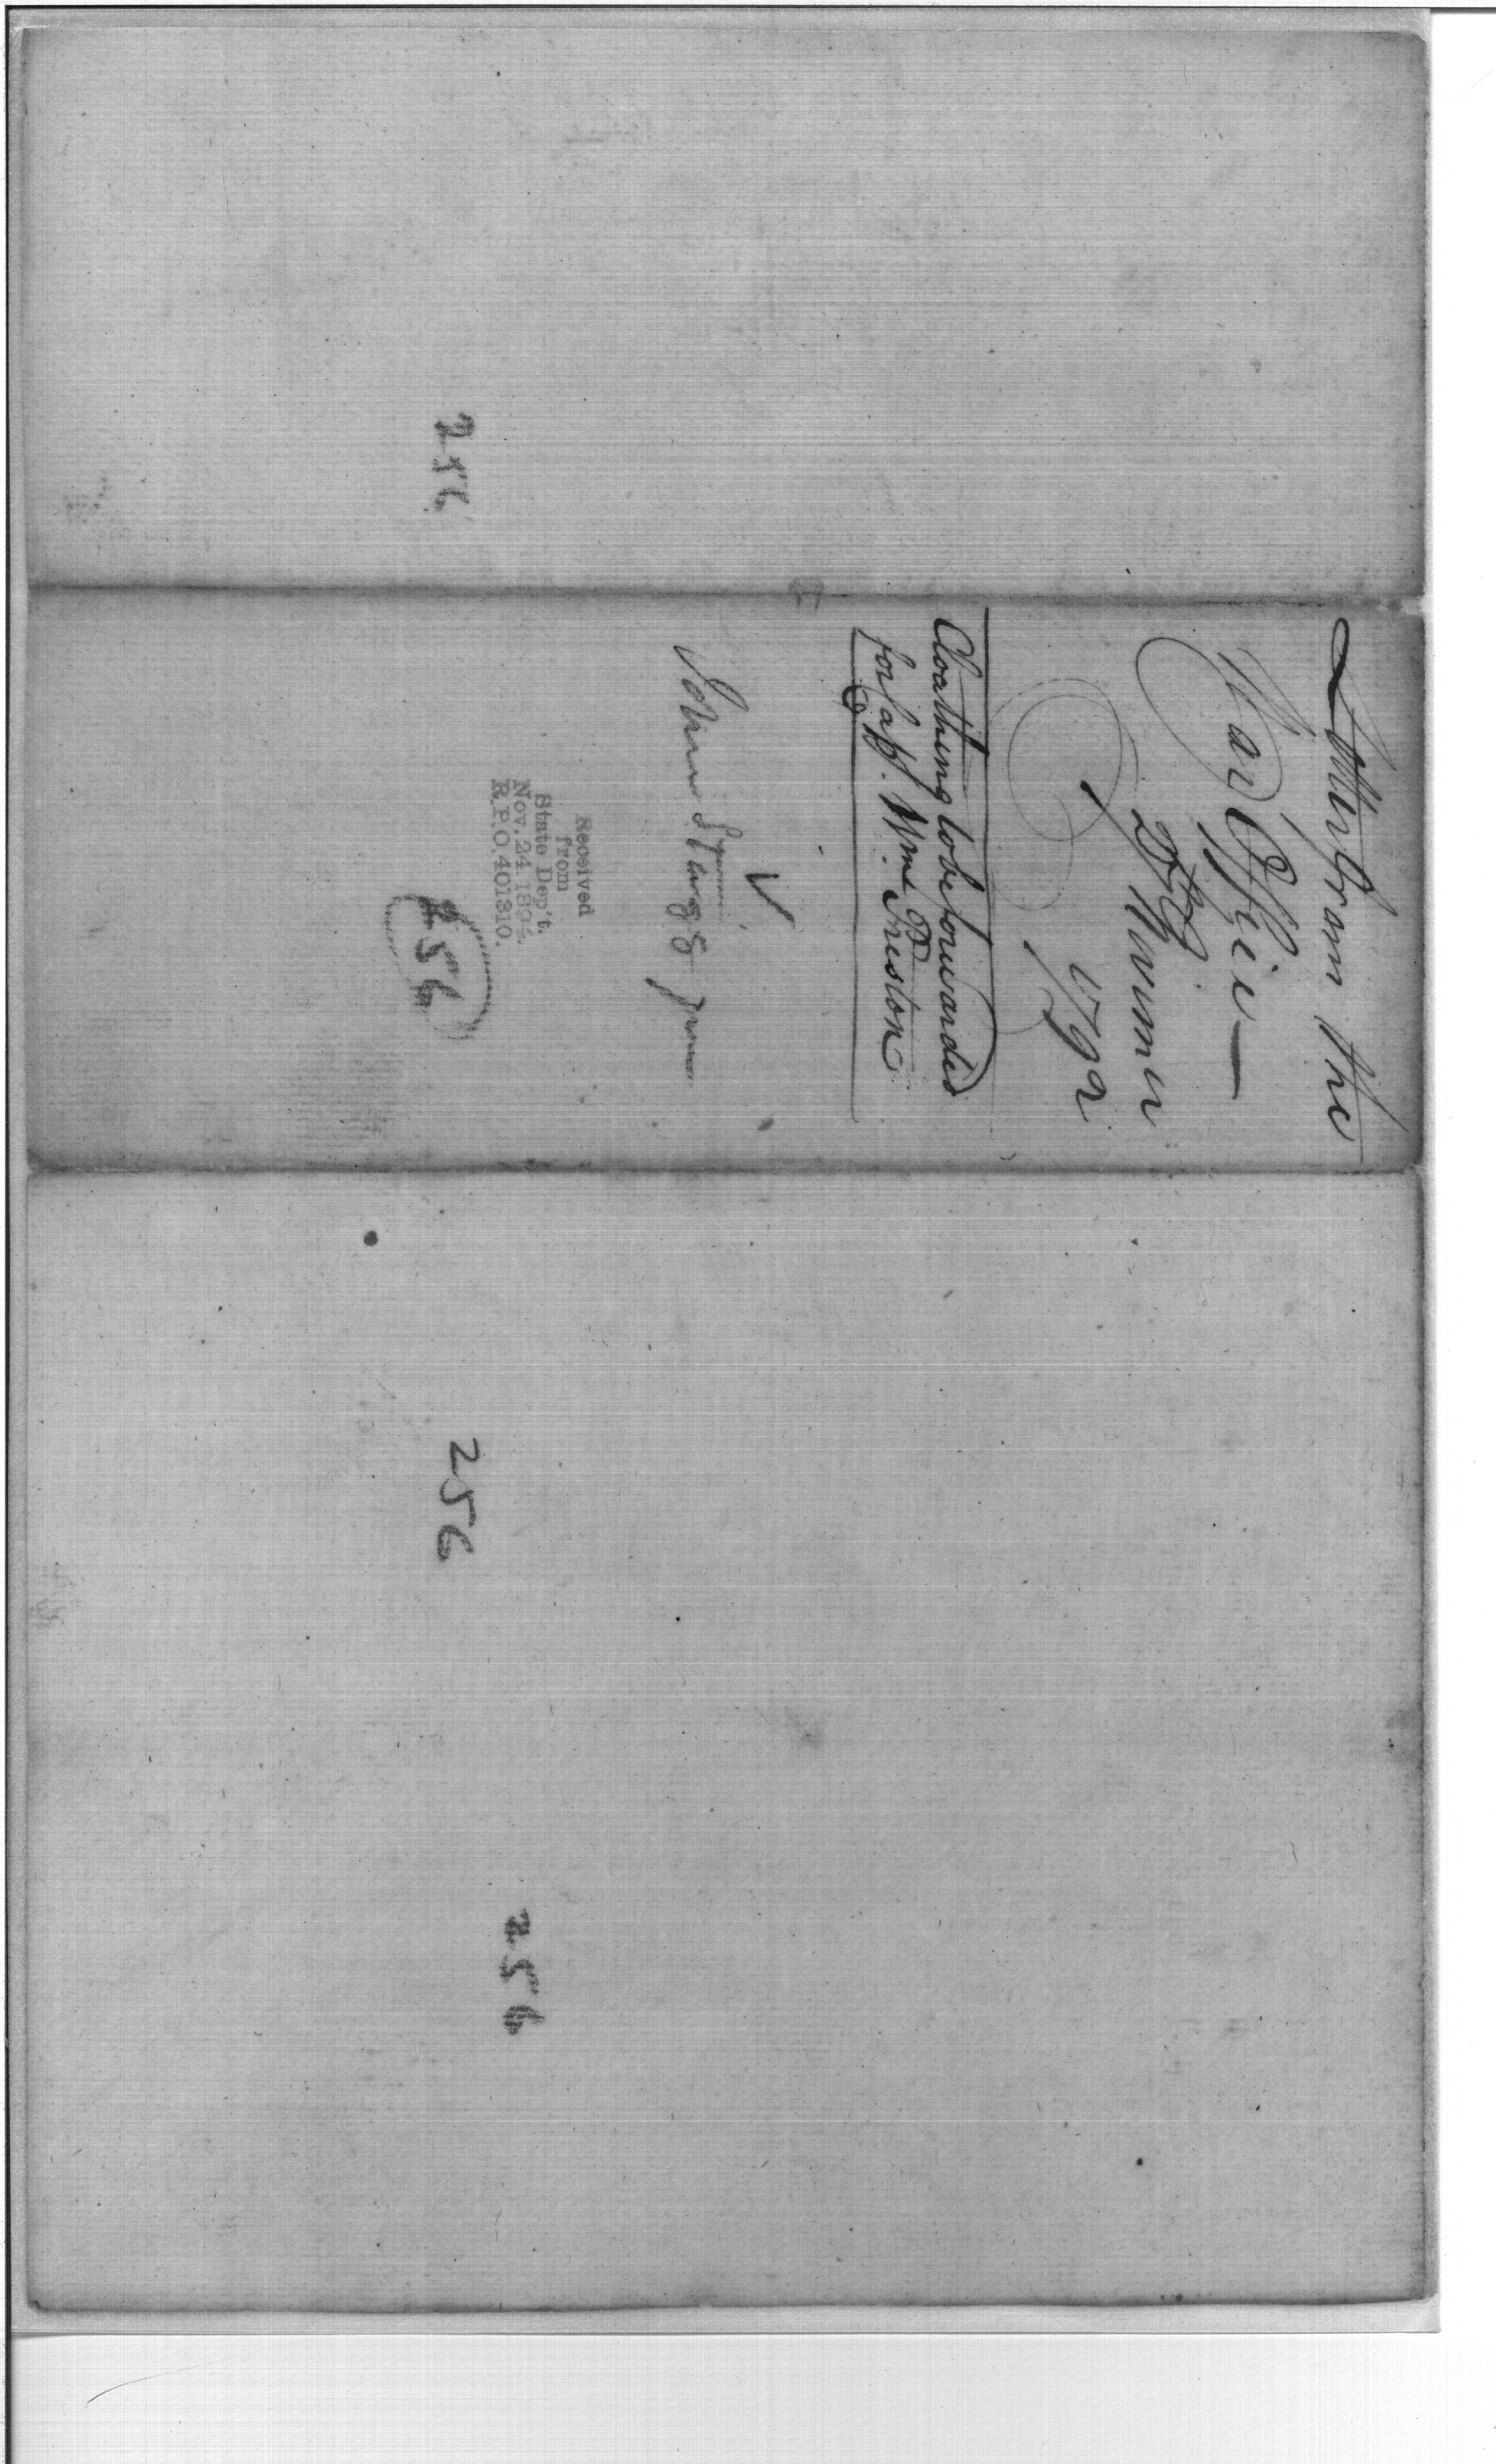 Letter from the
War Office
1792
Cloathing to be forwarded
for Capt. Wm. Preston
John Stagg jun
Received
from
State Dep't.
Nov. 24 1894.
R.P.O. 401310.
256
256
256
256